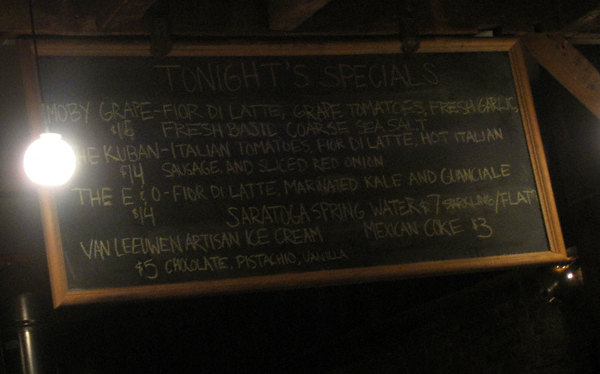 TONIGHT'S SPECIALS
MOBY GRAPE-FIOR DI LATTE, GRAPE TOMATOES, FRESH GARLIC,
FRESH BASIL COARSE SEA SALT
THE KUBAN-ITALIAN TOMATOES, FIOR DI LATTE, HOT ITALIAN
$14 SAUSAGE, AND SLICED RED ONION
THE E & O-FIOR DI LATTE, MARINATED KALE AND GUANCIALE
$14 SARATOGA SPRING WATER $7 SPARKLING/FLAT
VAN LEEUWEN ARTISAN ICE CREAM MEXICAN COKE $3
$5 CHOCOLATE, PISTACHIO, VANILLA